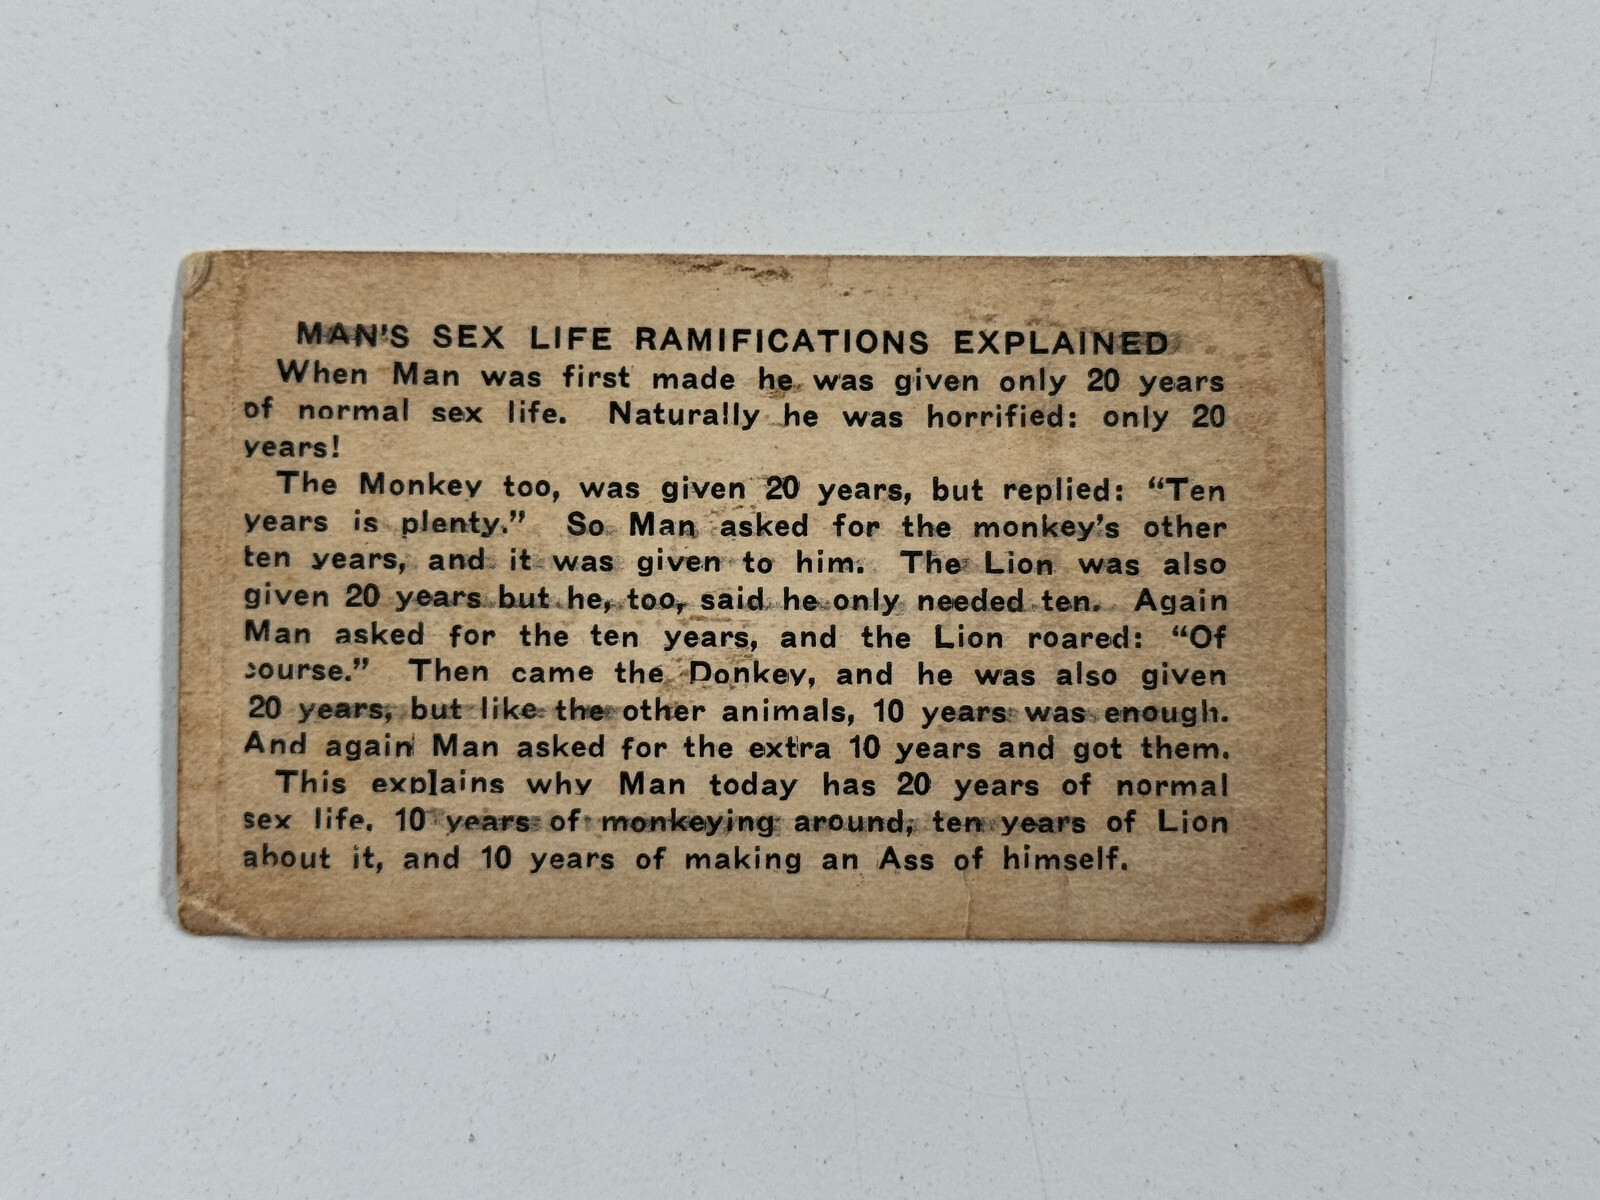 MAN'S SEX LIFE RAMIFICATIONS EXPLAINED
When Man was first made he was given only 20 years
of normal sex life. Naturally he was horrified: only 20
years!
The Monkey too, was given 20 years, but replied: “Ten
years is plenty.” So Man asked for the monkey's other
ten years, and it was given to him. The Lion was also
given 20 years but he, too, said he only needed ten. Again
Man asked for the ten years, and the Lion roared: “Of
course.” Then came the Donkey, and he was also given
20 years, but like the other animals, 10 years was enough.
And again Man asked for the extra 10 years and got them.
This explains why Man today has 20 years of normal
sex life. 10 years of monkeying around, ten years of Lion
about it, and 10 years of making an Ass of himself.